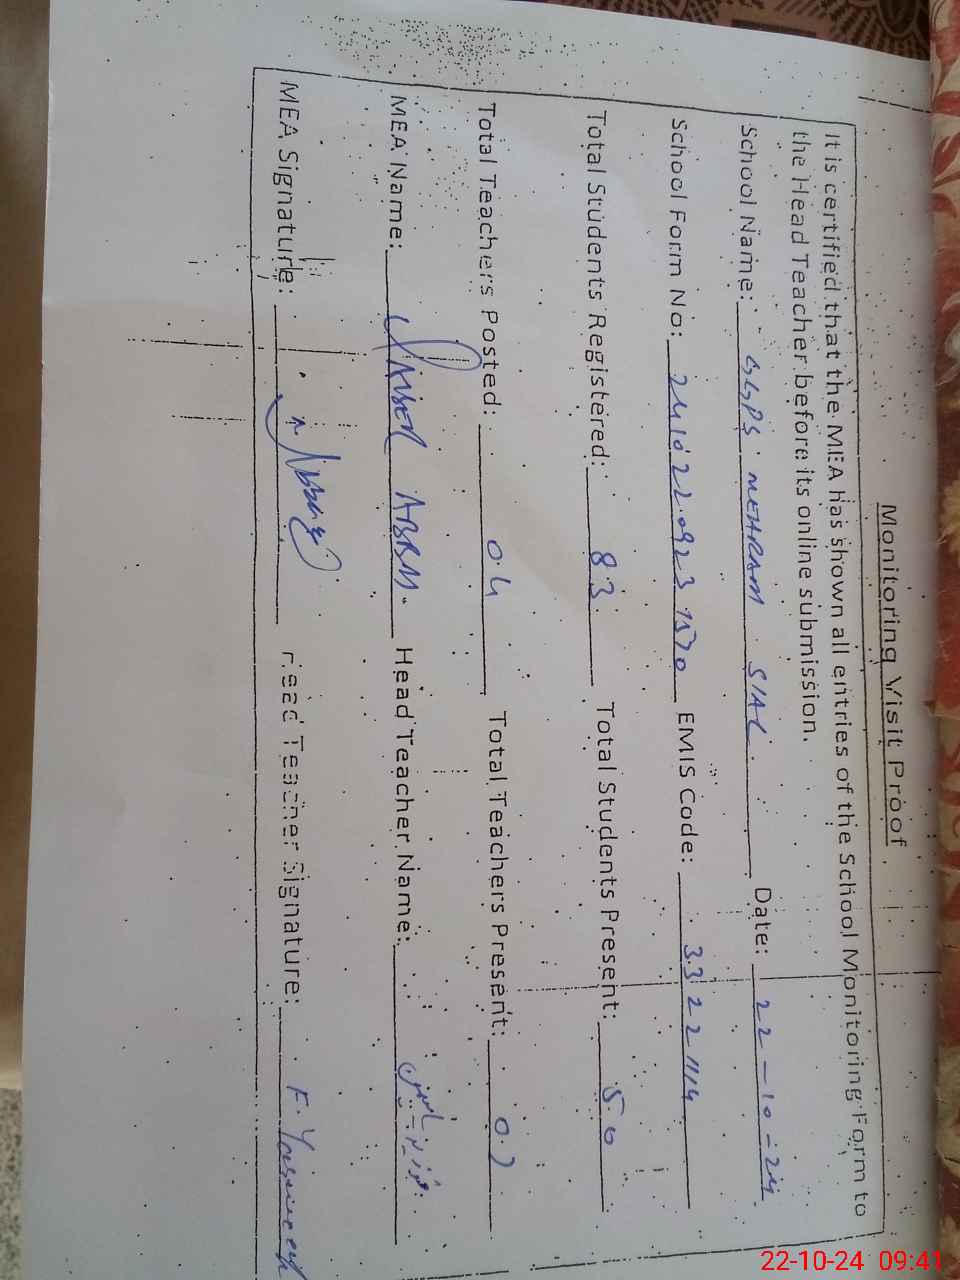 Monitoring Visit Proof
It is certified that the MEA has shown all entries of the School Monitoring Form to
the Head Teacher before its online submission.
School Name: GGPS MEHRAM SIAL. Date: 22-10-24
School Form No: EMIS Code: 33221114
Total Students Registered: 83 Total Students Present: 50
Total Teachers Posted: 04 Total Teachers Present: 02
MEA Name: Head Teacher Name:
MEA Signature: Head Teacher Signature: F. Yasmeen
22-10-24 09:41